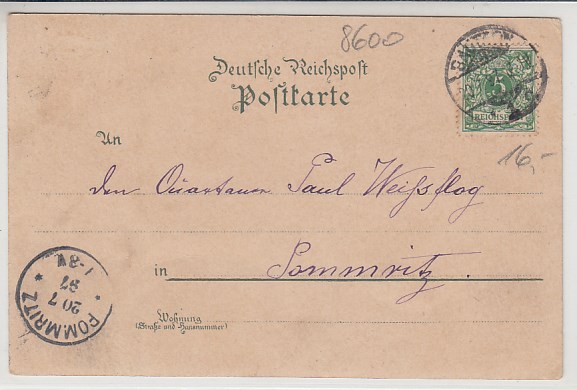 8600
Deutsche Reichspost
Postkarte
BAUTZEN
5
REICHSPOST
16,-
An
den Quartaner Paul Weißflog
in Pommritz
Wohnung
(Straße und Hausnummer)
POMMRITZ
20 7
97
7-8V